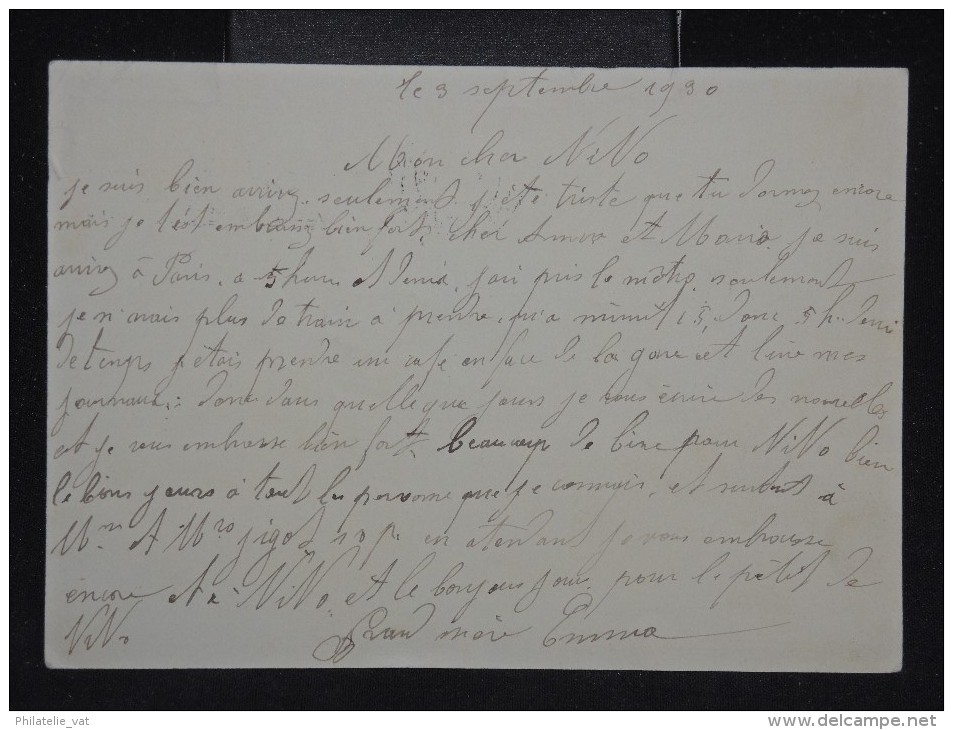 le 3 septembre 1930
Mon cher NiNo
je suis bien arrivez seulement j été triste que tu dormez encore
mais je t'ést embrassez bien fort, cher et Maria je suis
arrivez à Paris, a 5 heure et demie, j'ai pris le métro, seulement
je n'avais plus de train à prendre, qu'a minuit 15, donc 5 h demi
de temps j'étais prendre un café en face de la gare et lire mes
journaux, donc dans quelleque jours je vous écrire des nouvelles
et je vous embrasse bien fort, beaucoup de bise pour NiNo bien
le bons jours à tout les personne que je connais, et surtout à
Mm et Mro en atendant je vous embrasse
encore et à NiNo, et le bonjours pour le pétit de
NiNo Grand mère Emma
Philatelie_vat
www.delcampe.net